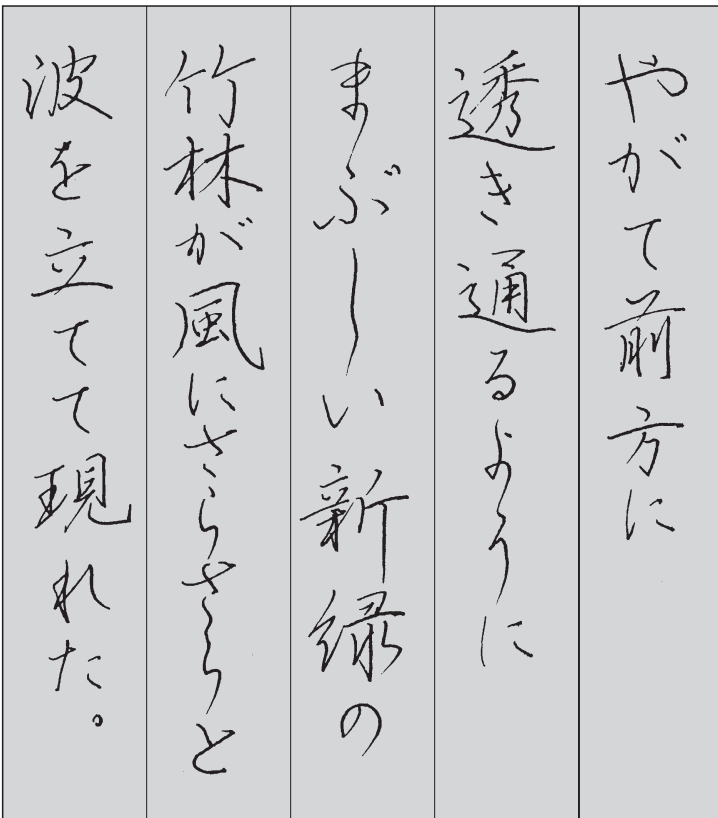 やがて前方に
透き通るように
まぶしい新緑の
竹林が風にさらさらと
波を立てて現れた。